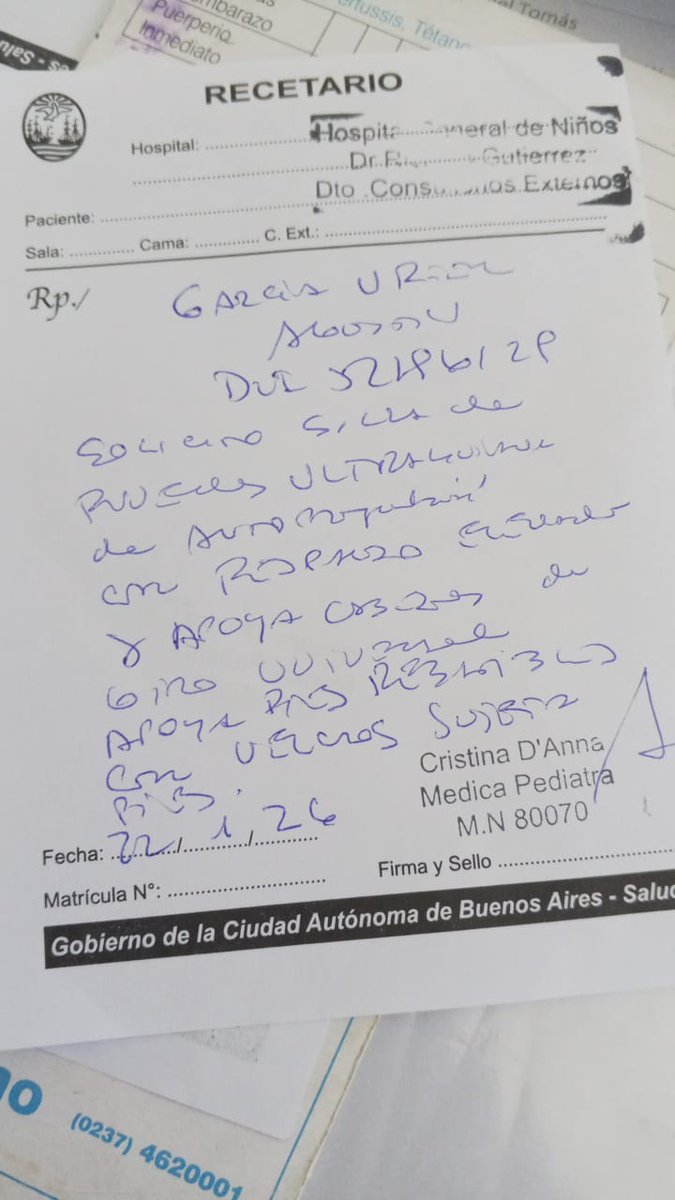 mbarazo
Puerperio
Inmediato
ertussis, Tétan
el Tomás
s - Salu
RECETARIO
Hospital:
Hospita General de Niños
Dr. R Gutierrez
Dto. Consu Externos
Paciente:
Sala: Cama: C. Ext.:
Rp./
GARCIA URIEL
DNI
SOLICITO SILLA de
RUEDAS ULTRALIVIANA
de AUTOPROPULSIÓN
con RESPALDO
y APOYA CABEZAS de
GIRO UNIVERSAL
APOYA PIES REBATIBLES
con VELCROS SUJETA
PIES.
Cristina D'Anna
Medica Pediatra
M.N 80070
Fecha: 22/1/26
Matrícula N°:
Firma y Sello
Gobierno de la Ciudad Autónoma de Buenos Aires - Salud
no
(0237) 4620001